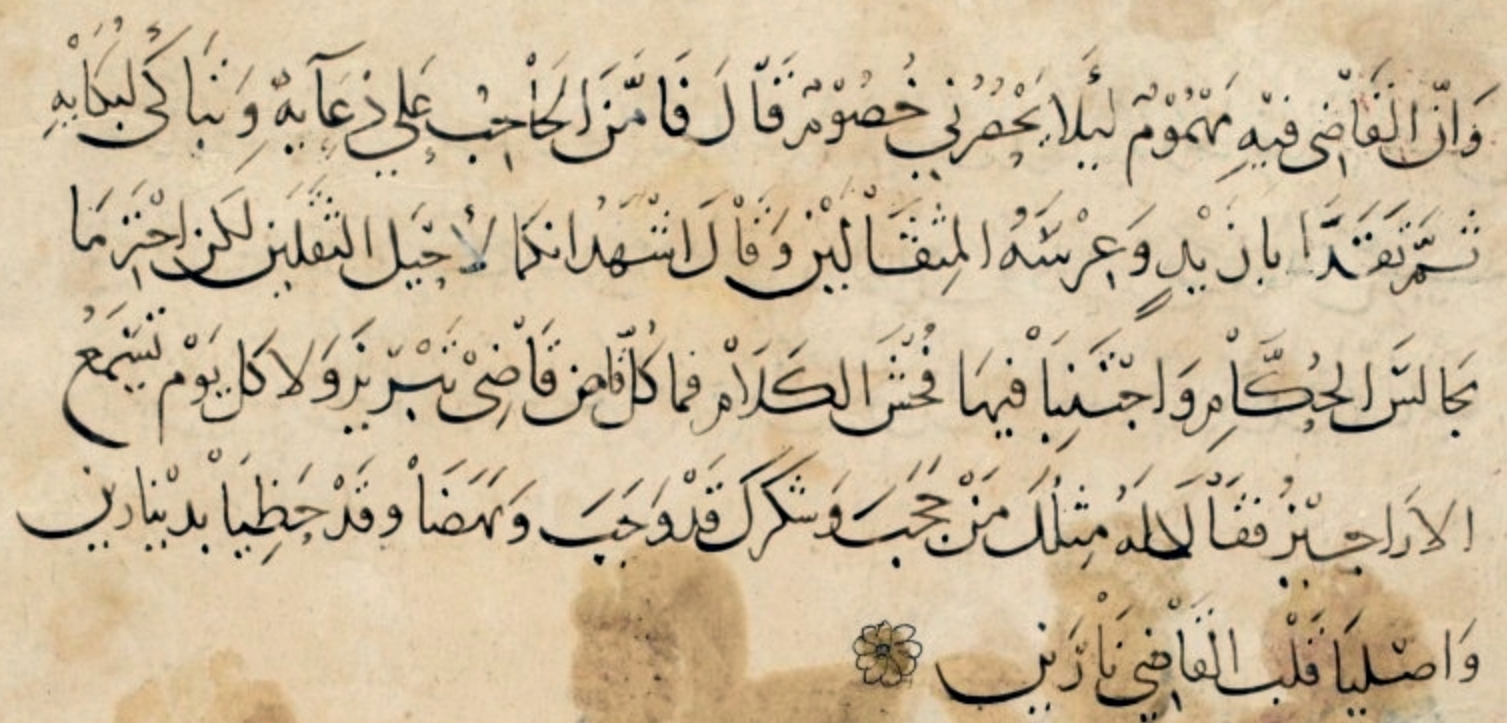 وَانَّ القَاضِى فِيهِ مَهْمُوْمٌ لئلا يَحْضُرَنى خُصُوْمٌ قَالَ فَامَّنَ الحَاجِبُ عَلى دُعَآيهِ وَتَبَاكَى لبُكَايِهِ
ثمَّ نَقَدَ ابا زَيْدٍ وَعِرْسَهُ المِثقَالَيْنِ وَقَالَ اشهَدُ انكما لأحْيَل الثقلين لكن احْتَرِمَا
مجَالسَ الحُكَّامِ وَاجتَنِبَا فيهَا فُحْشَ الكَلَامِ فما كُلّ قاضٍ قَاضِىْ تَبْرِيْزَ وَلا كل يَوْم تُسْمَعُ
الارَاجِيْزُ فقَالا لَهُ مِثلُكَ مَنْ حَجَبَ وَشكرُكَ قَدْ وَجَبَ وَنَهَضَا وقَدْ حَظِيَا بدينارين
وَاصْليَا قَلْبَ القَاضِي نَارَيْنِ